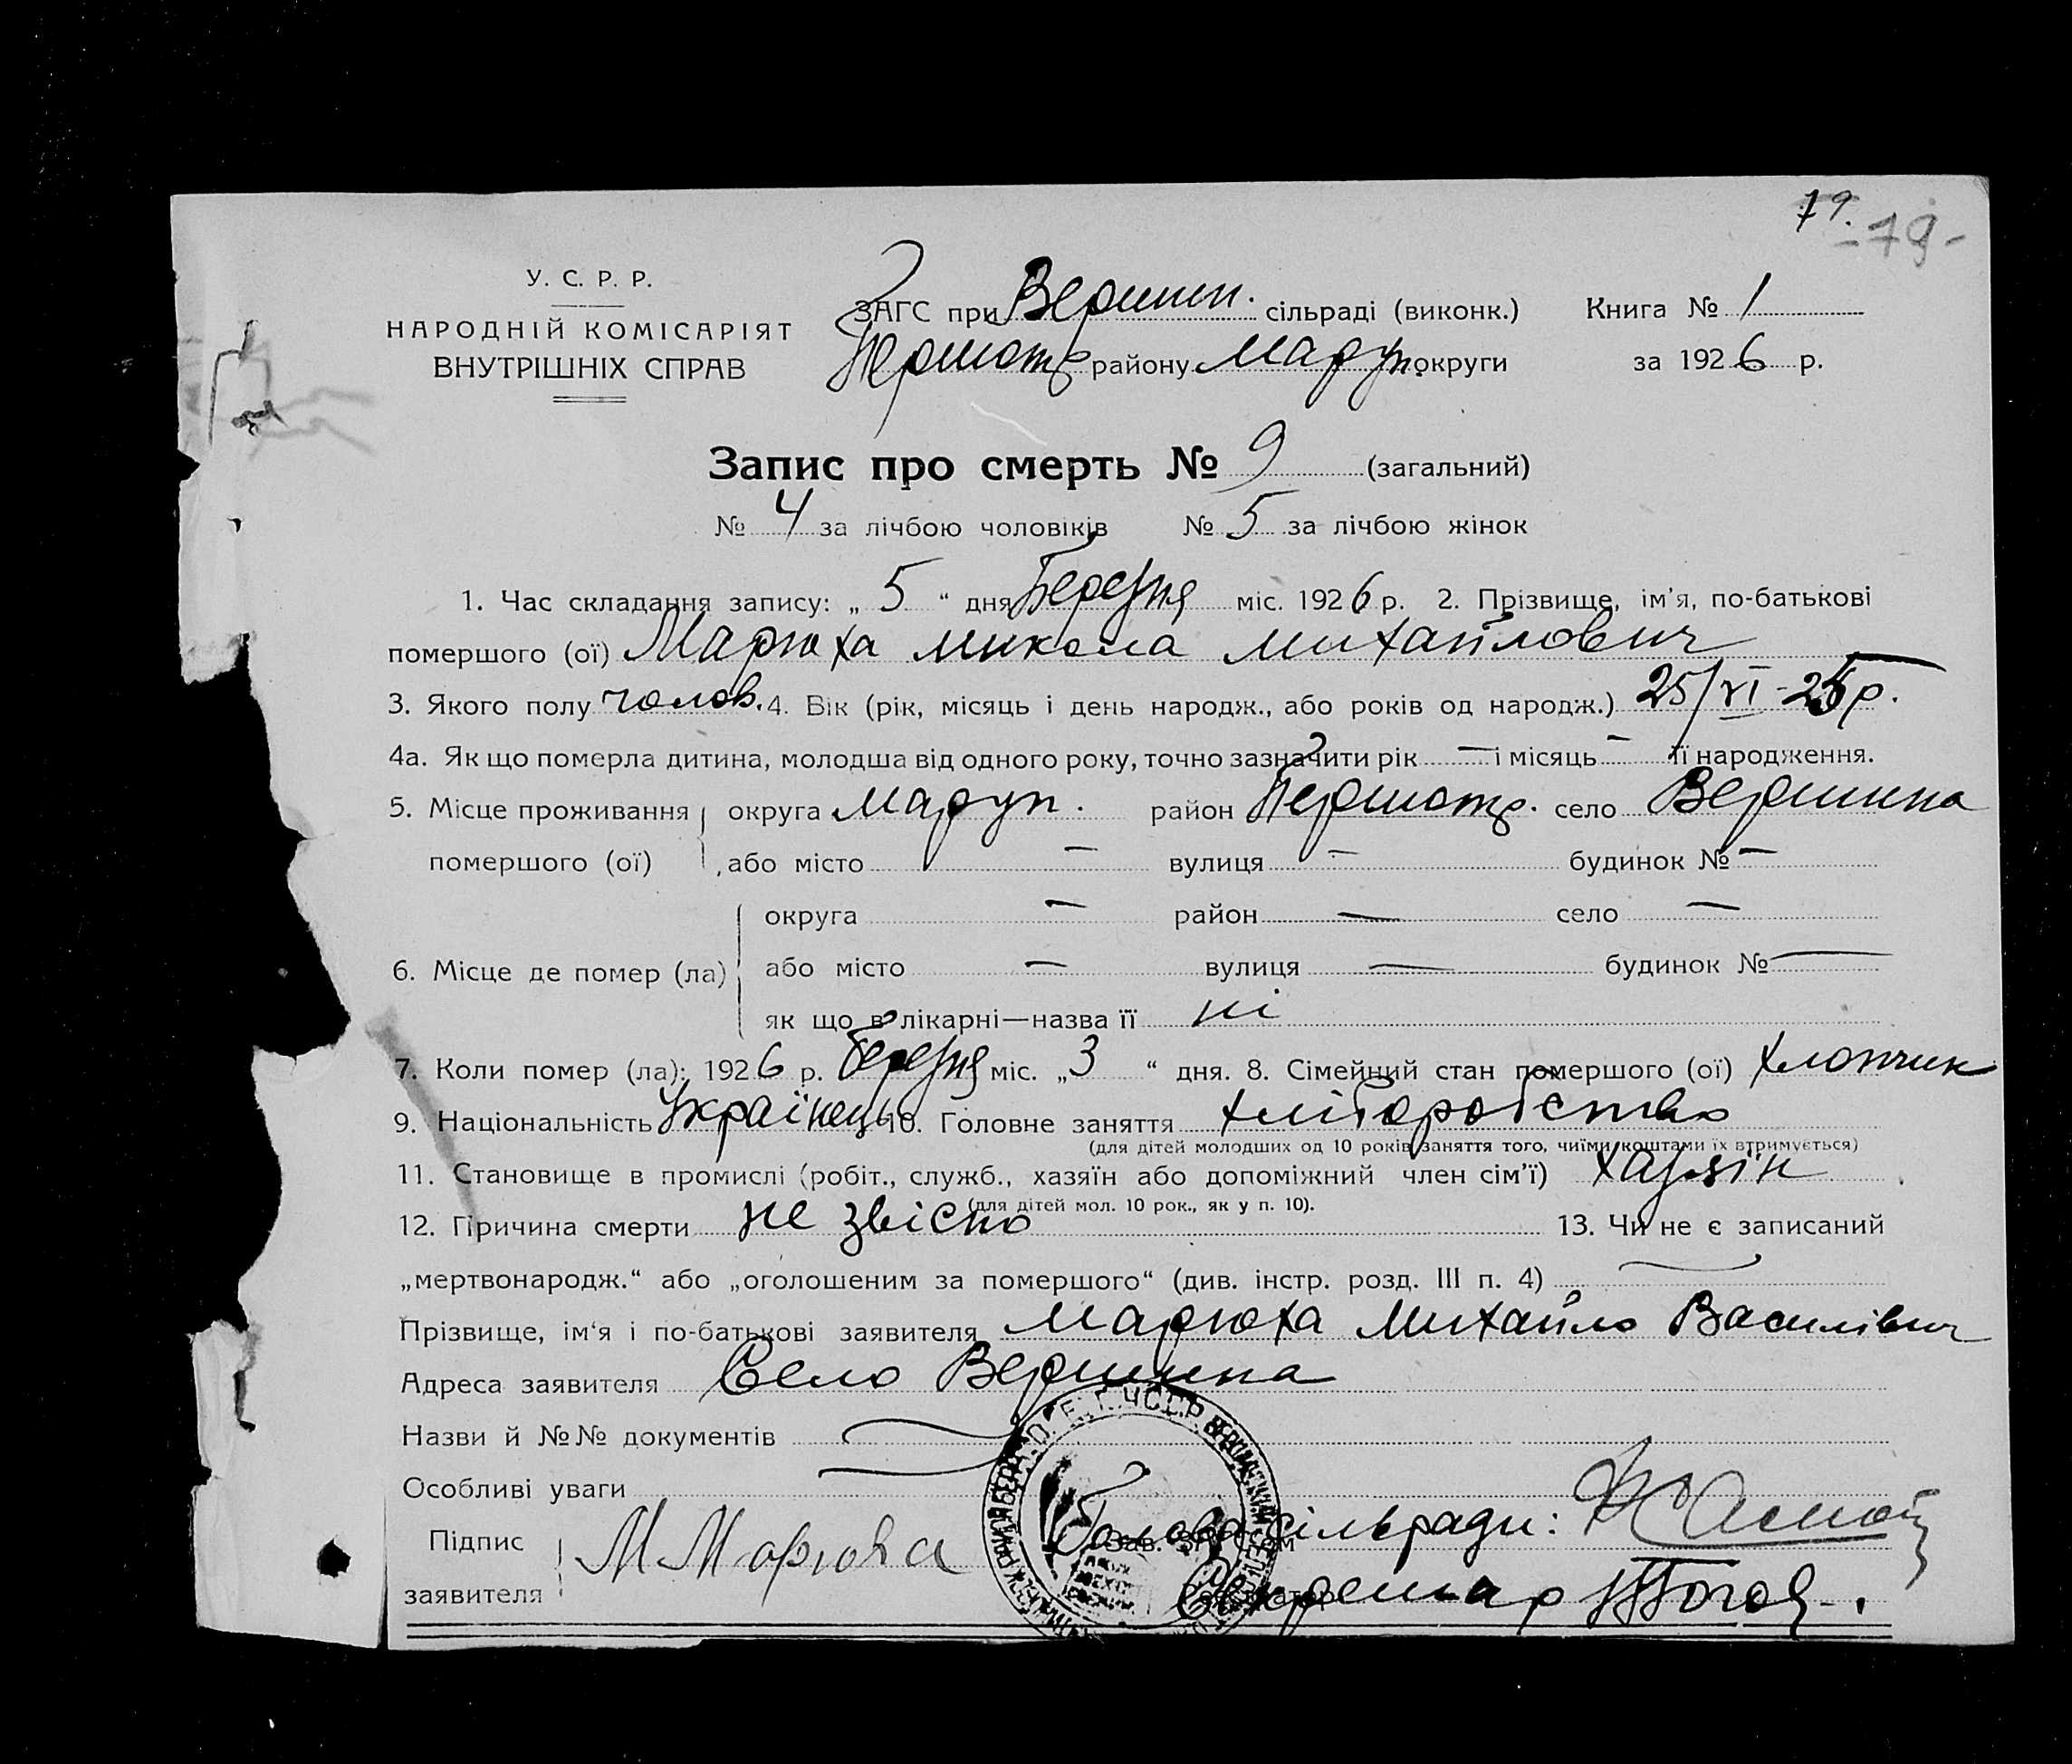 79.
-79-
У. С. Р. Р.
НАРОДНІЙ КОМІСАРІЯТ
ВНУТРІШНІХ СПРАВ
ЗАГС при Вершин. сільраді (виконк.) Книга № 1
Першотр району Маруп. округи за 1926 р.
Запис про смерть № 9 (загальний)
№ 4 за лічбою чоловіків № 5 за лічбою жінок
1. Час складання запису: „ 5 “ дня Березня міс. 1926 р. 2. Прізвище, ім'я, по-батькові
помершого (ої) Марюха Микола Михайлович
3. Якого полу чолов. 4. Вік (рік, місяць і день народж., або років од народж.) 25/VI-25р.
4а. Як що померла дитина, молодша від одного року, точно зазначити рік — і місяць — її народження.
5. Місце проживання округа Маруп. район Першотр. село Вершина
помершого (ої) або місто — вулиця — будинок № —
округа — район — село —
6. Місце де помер (ла) або місто — вулиця — будинок № —
як що в лікарні—назва її ні
7. Коли помер (ла): 1926 р. березня міс. „ 3 “ дня. 8. Сімейний стан помершого (ої) хлопчик
9. Національність Українець 10. Головне заняття хліборобство
(для дітей молодших од 10 років заняття того, чиїми коштами їх втримується)
11. Становище в промислі (робіт., служб., хазяїн або допоміжний член сім'ї) хазяїн
(для дітей мол. 10 рок., як у п. 10).
12. Причина смерти не звісно 13. Чи не є записаний
„мертвонародж.“ або „оголошеним за помершого“ (див. інстр. розд. III п. 4) —
Прізвище, ім'я і по-батькові заявителя Марюха Михайло Василівич
Адреса заявителя Село Вершина
Назви й №№ документів
Особливі уваги
Підпис заявителя М Марюха
Голова сільради:
Зав. ЗАГС'ом
Секретар